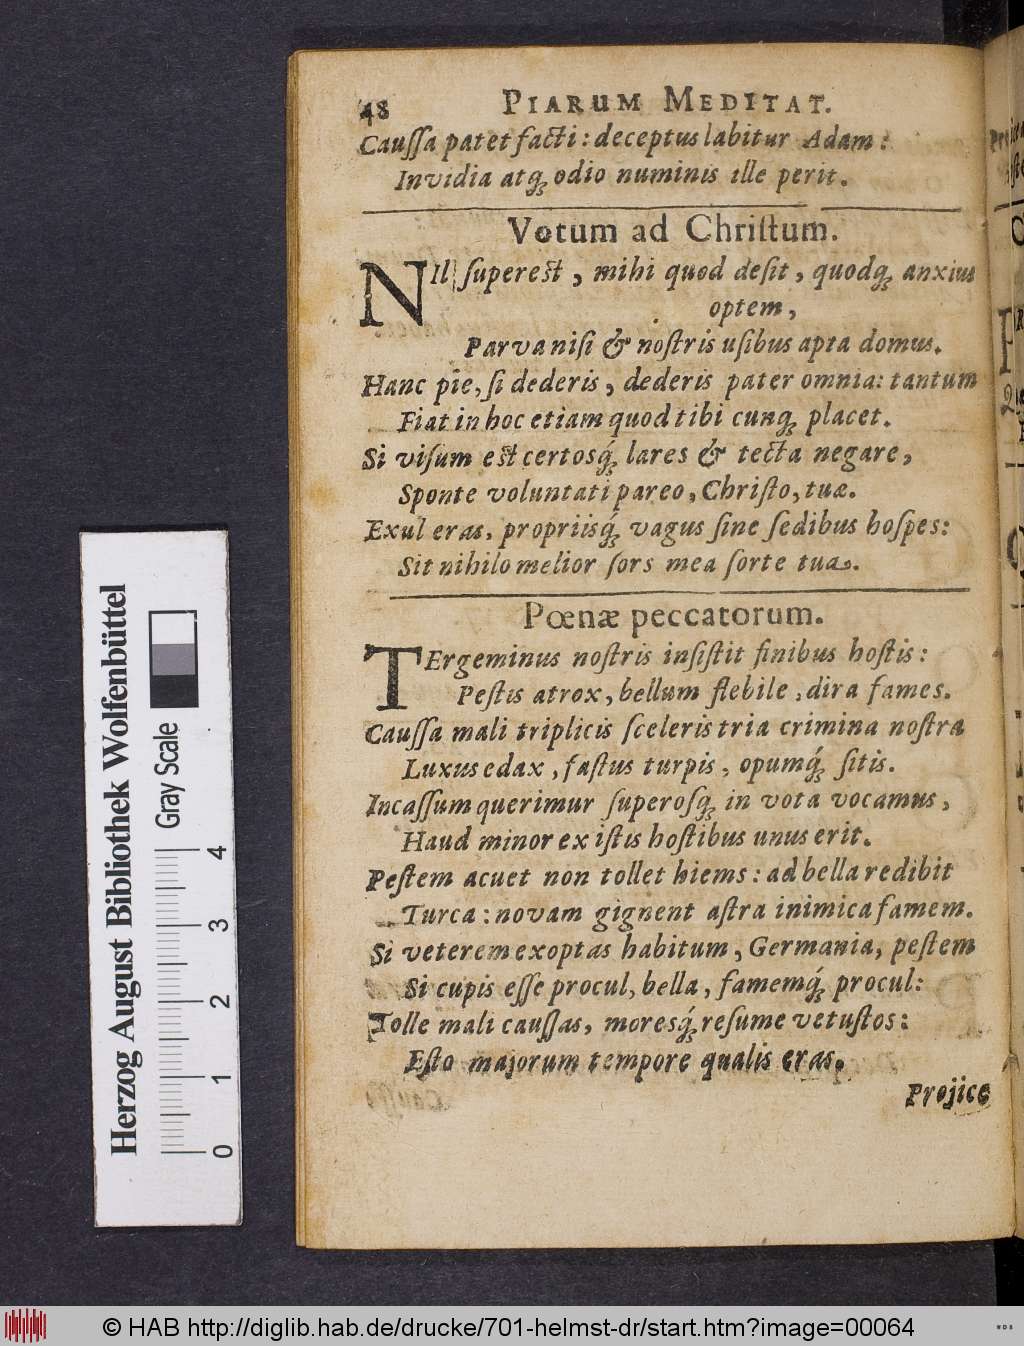 48 PIARUM MEDITAT.
Cauſſa patet facti: deceptus labitur Adam:
Invidia atq; odio numinis ille perit.
Votum ad Chriſtum.
NIl ſupereſt, mihi quod deſit, quodq; anxius
optem,
Parva niſi & noſtris uſibus apta domus.
Hanc pie, ſi dederis, dederis pater omnia: tantum
Fiat in hoc etiam quod tibi cunq; placet.
Si viſum eſt certosq́; lares & tecta negare,
Sponte voluntati pareo, Chriſto, tuæ.
Exul eras, propriisq́; vagus ſine ſedibus hoſpes:
Sit nihilo melior ſors mea ſorte tua.
Pœnæ peccatorum.
TErgeminus noſtris inſiſtit finibus hoſtis:
Peſtis atrox, bellum flebile, dira fames.
Cauſſa mali triplicis ſceleris tria crimina noſtra
Luxus edax, faſtus turpis, opumq́; ſitis.
Incaſſum querimur ſuperosq; in vota vocamus,
Haud minor ex iſtis hoſtibus unus erit.
Peſtem acuet non tollet hiems: ad bella redibit
Turca: novam gignent aſtra inimica famem.
Si veterem exoptas habitum, Germania, peſtem
Si cupis eſſe procul, bella, famemq́; procul:
Tolle mali cauſſas, moresq́; reſume vetuſtos:
Eſto majorum tempore qualis eras.
Projice
Herzog August Bibliothek Wolfenbüttel
Gray Scale
0 1 2 3 4
© HAB http://diglib.hab.de/drucke/701-helmst-dr/start.htm?image=00064